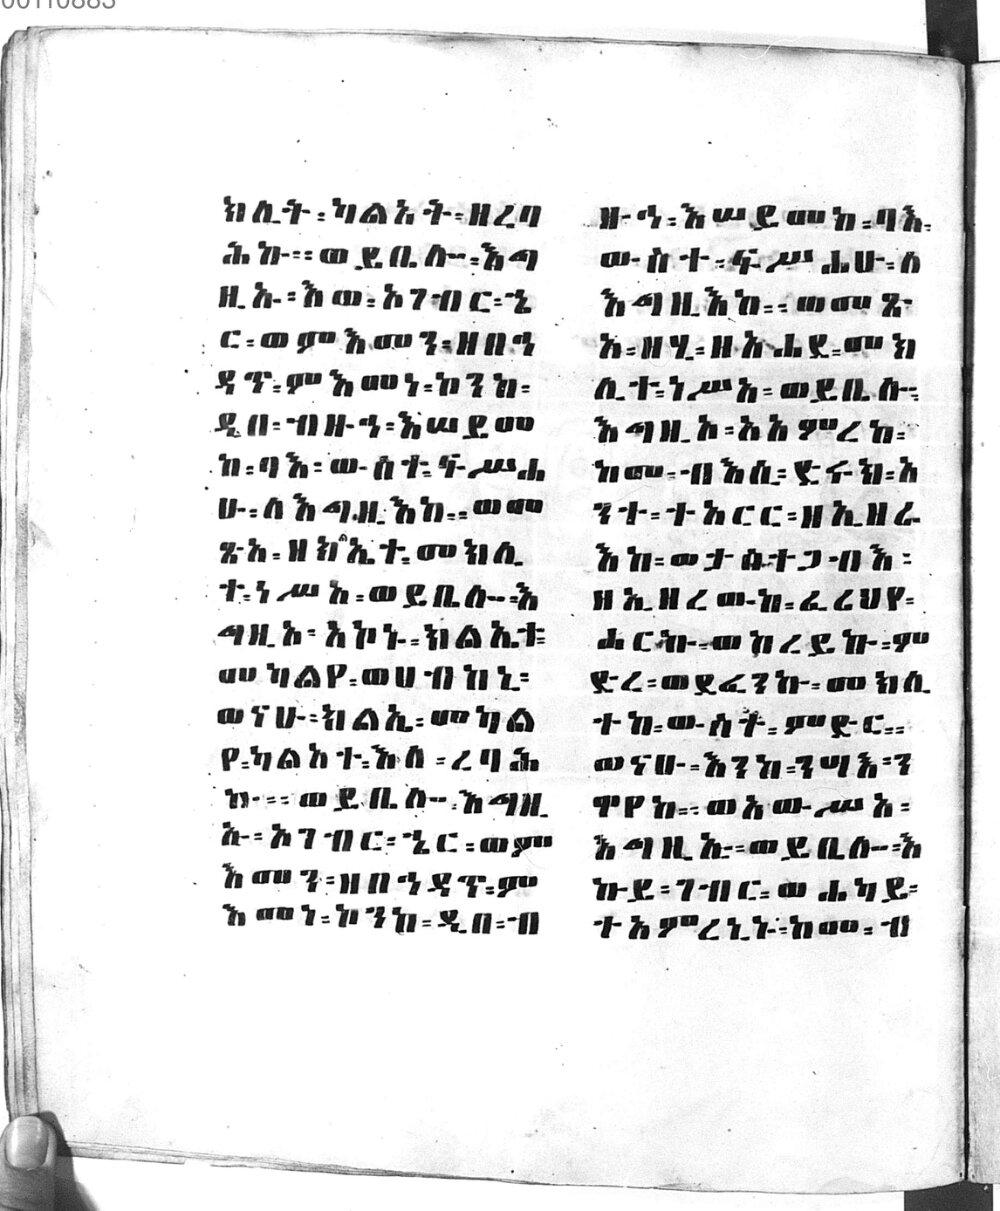 00110883
ክሊት፡ካልእት፡ዘረባ
ሕከ፡፡ወይቢሎ፡እግ
ዚኡ፡እወ፡አገብር፡ኄ
ር፡ወምእመን፡ዘበኅ
ዳጥ፡ምእመነ፡ኮንከ፡
ዲበ፡ብዙኅ፡እሠይመ
ከ፡ባእ፡ውስተ፡ፍሥሐ
ሁ፡ለእግዚእከ፡፡ወመ
ጽአ፡ዘክልኤተ፡መክሊ
ተ፡ነሥአ፡ወይቢሎ፡እ
ግዚኦ፡አኮኑ፡ክልኤተ፡
መካልየ፡ወሀብከኒ፡
ወናሁ፡ክልኤ፡መካል
የ፡ካልአተ፡እለ፡ረባሕ
ኩ፡፡ወይቢሎ፡እግዚ
ኡ፡አገብር፡ኄር፡ወም
እመን፡ዘበኅዳጥ፡ም
እመነ፡ኮንከ፡ዲበ፡ብ
ዙኅ፡እሠይመከ፡ባእ፡
ውስተ፡ፍሥሐሁ፡ለ
እግዚእከ፡፡ወመጽ
አ፡ዘሂ፡ዘአሐዱ፡መክ
ሊተ፡ነሥአ፡ወይቢሎ፡
እግዚኦ፡አአምረከ፡
ከመ፡ብእሲ፡ድሩክ፡አ
ንተ፡ተአርር፡ዘኢዘራ
እከ፡ወታስተጋብእ፡
ዘኢዘረውከ፡ፈሪህየ፡
ሖርኩ፡ወከረይኩ፡ም
ድረ፡ወደፈንኩ፡መክሊ
ተከ፡ውስተ፡ምድር፡፡
ወናሁ፡እንከ፡ንሣእ፡ን
ዋየከ፡፡ወአውሥአ፡
እግዚኡ፡ወይቢሎ፡እ
ኩይ፡ገብር፡ወሐካይ፡
ተአምረኒኑ፡ከመ፡ብ